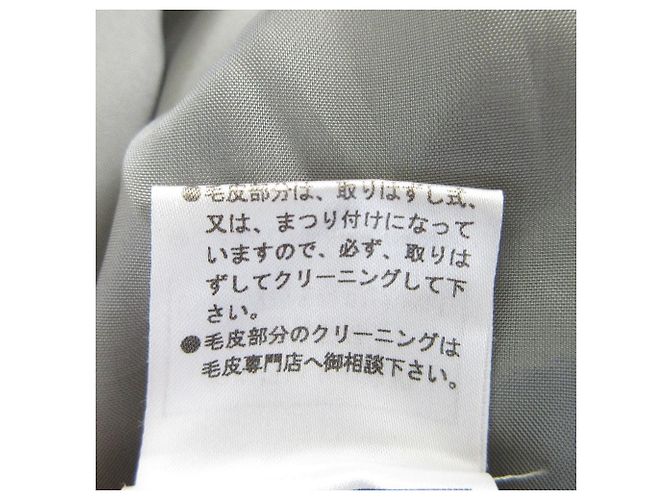 ●毛皮部分は、取りはずし式、
又は、まつり付けになって
いますので、必ず、取りは
ずしてクリーニングして下
さい。
●毛皮部分のクリーニングは
毛皮専門店へ御相談下さい。